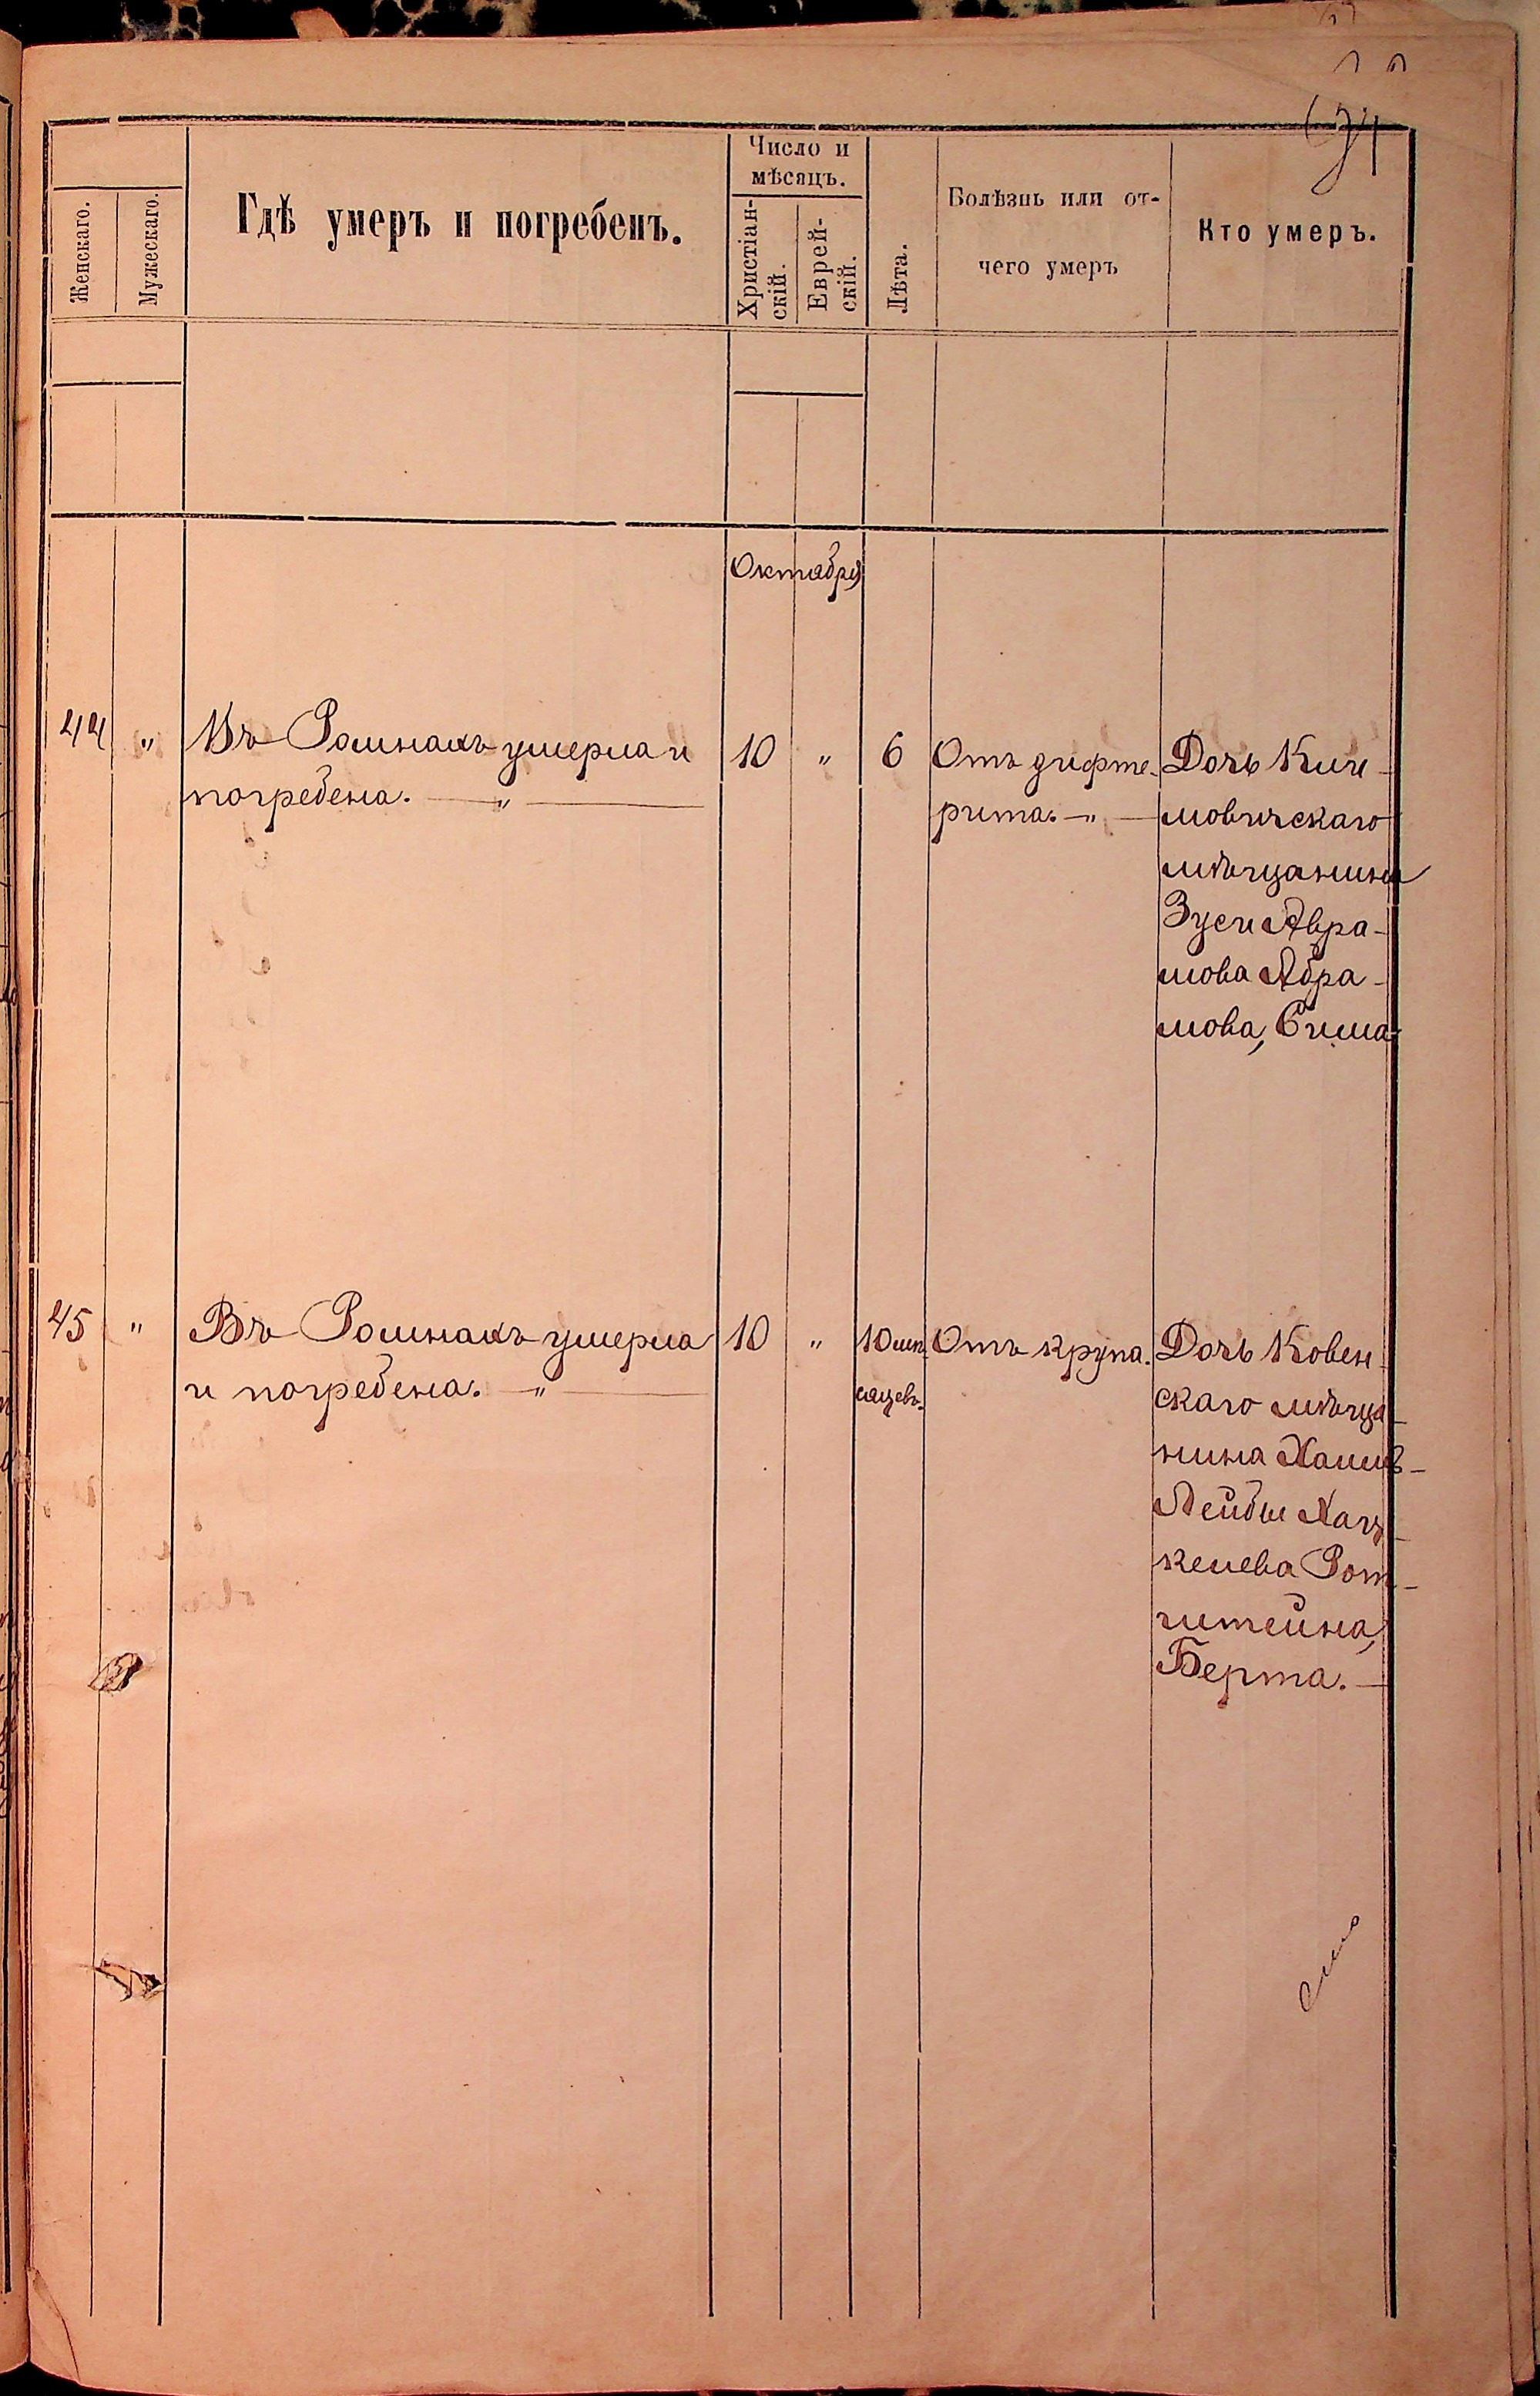 Женскаго.
Мужескаго.
Гдѣ умеръ и погребенъ.
Число и
мѣсяцъ.
Христіан-
скій.
Еврей-
скій.
Лѣта.
Болѣзнь или от-
чего умеръ
Кто умеръ.
Октября
44 " Въ Ромнахъ умерла и
погребена. — " —
10 " 6
Отъ дифте-
рита. — " —
Дочь Кли-
мовичскаго
мѣщанина
Зуси Авра-
мова Абра-
мова, Сима
45 " Въ Ромнахъ умерла
и погребена. — " —
10 " 10 мѣ-
сяцевъ.
Отъ крупа.
Дочь Ковен-
скаго мѣща-
нина
Лейбы Хац-
келева Рот-
штейна,
Берта. —